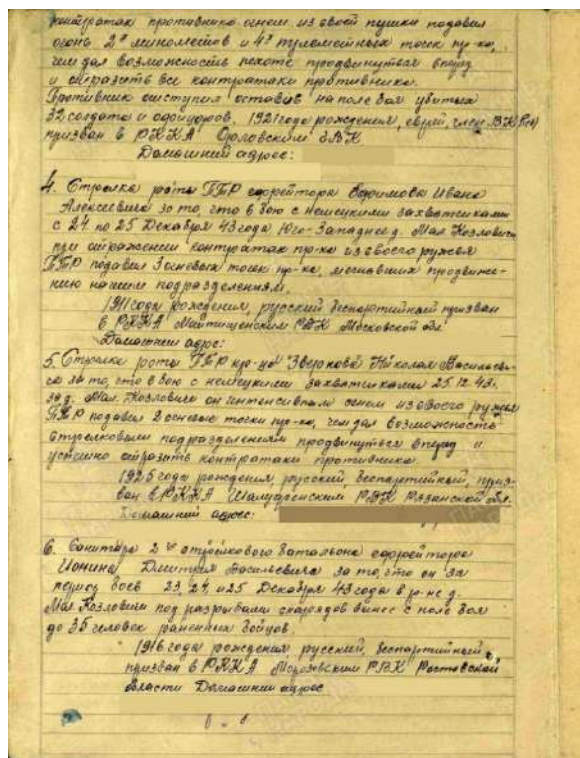 контратак противника огнем из своей пушки подавил
огонь 2х минометов и 4х пулеметных точек пр-ка,
чем дал возможность пехоте продвинуться вперед
и отразить все контратаки противника.
Противник отступил оставив на поле боя убитых
32 солдата и офицеров. 1921 года рождения, еврей, член ВКП(б)
призван в РККА Орловским ГВК
Домашний адрес:
4. Стрелка роты ПТР ефрейтора Ефимова Ивана
Алексеевича за то, что в бою с немецкими захватчиками
с 24 по 25 Декабря 43 года Юго-Западнее д. Мал. Козловичи
при отражении контратак пр-ка из своего ружья
ПТР подавил 3 огневых точек пр-ка, мешавших продвиже-
нию нашим подразделениям.
1911 года рождения, русский, беспартийный призван
в РККА Мытищенским РВК Московской обл.
Домашний адрес:
5. Стрелка роты ПТР кр-ца Зверкова Николая Васильеви-
ча за то, что в бою с немецкими захватчиками 25.12.43г.
за д. Мал. Козловичи он интенсивным огнем из своего ружья
ПТР подавил 2 огневые точки пр-ка, чем дал возможность
стрелковым подразделениям продвинуться вперед и
успешно отразить контратаки противника.
1925 года рождения, русский, беспартийный, приз-
ван в РККА РВК Рязанской обл.
Домашний адрес:
6. Санитара 2го стрелкового батальона ефрейтора
Ионина Дмитрия Васильевича за то, что он за
период боев 23, 24, и 25 Декабря 43 года в р-не д.
Мал. Козловичи под разрывами снарядов вынес с поле боя
до 35 человек раненных бойцов.
1916 года рождения русский, беспартийный,
призван в РККА Морозовским РВК Ростовской
области Домашний адрес